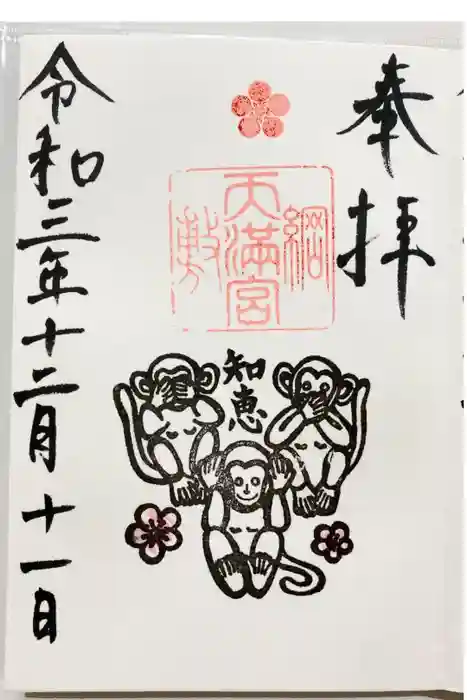 奉拝
綱敷天満宮
知恵
令和三年十二月十一日